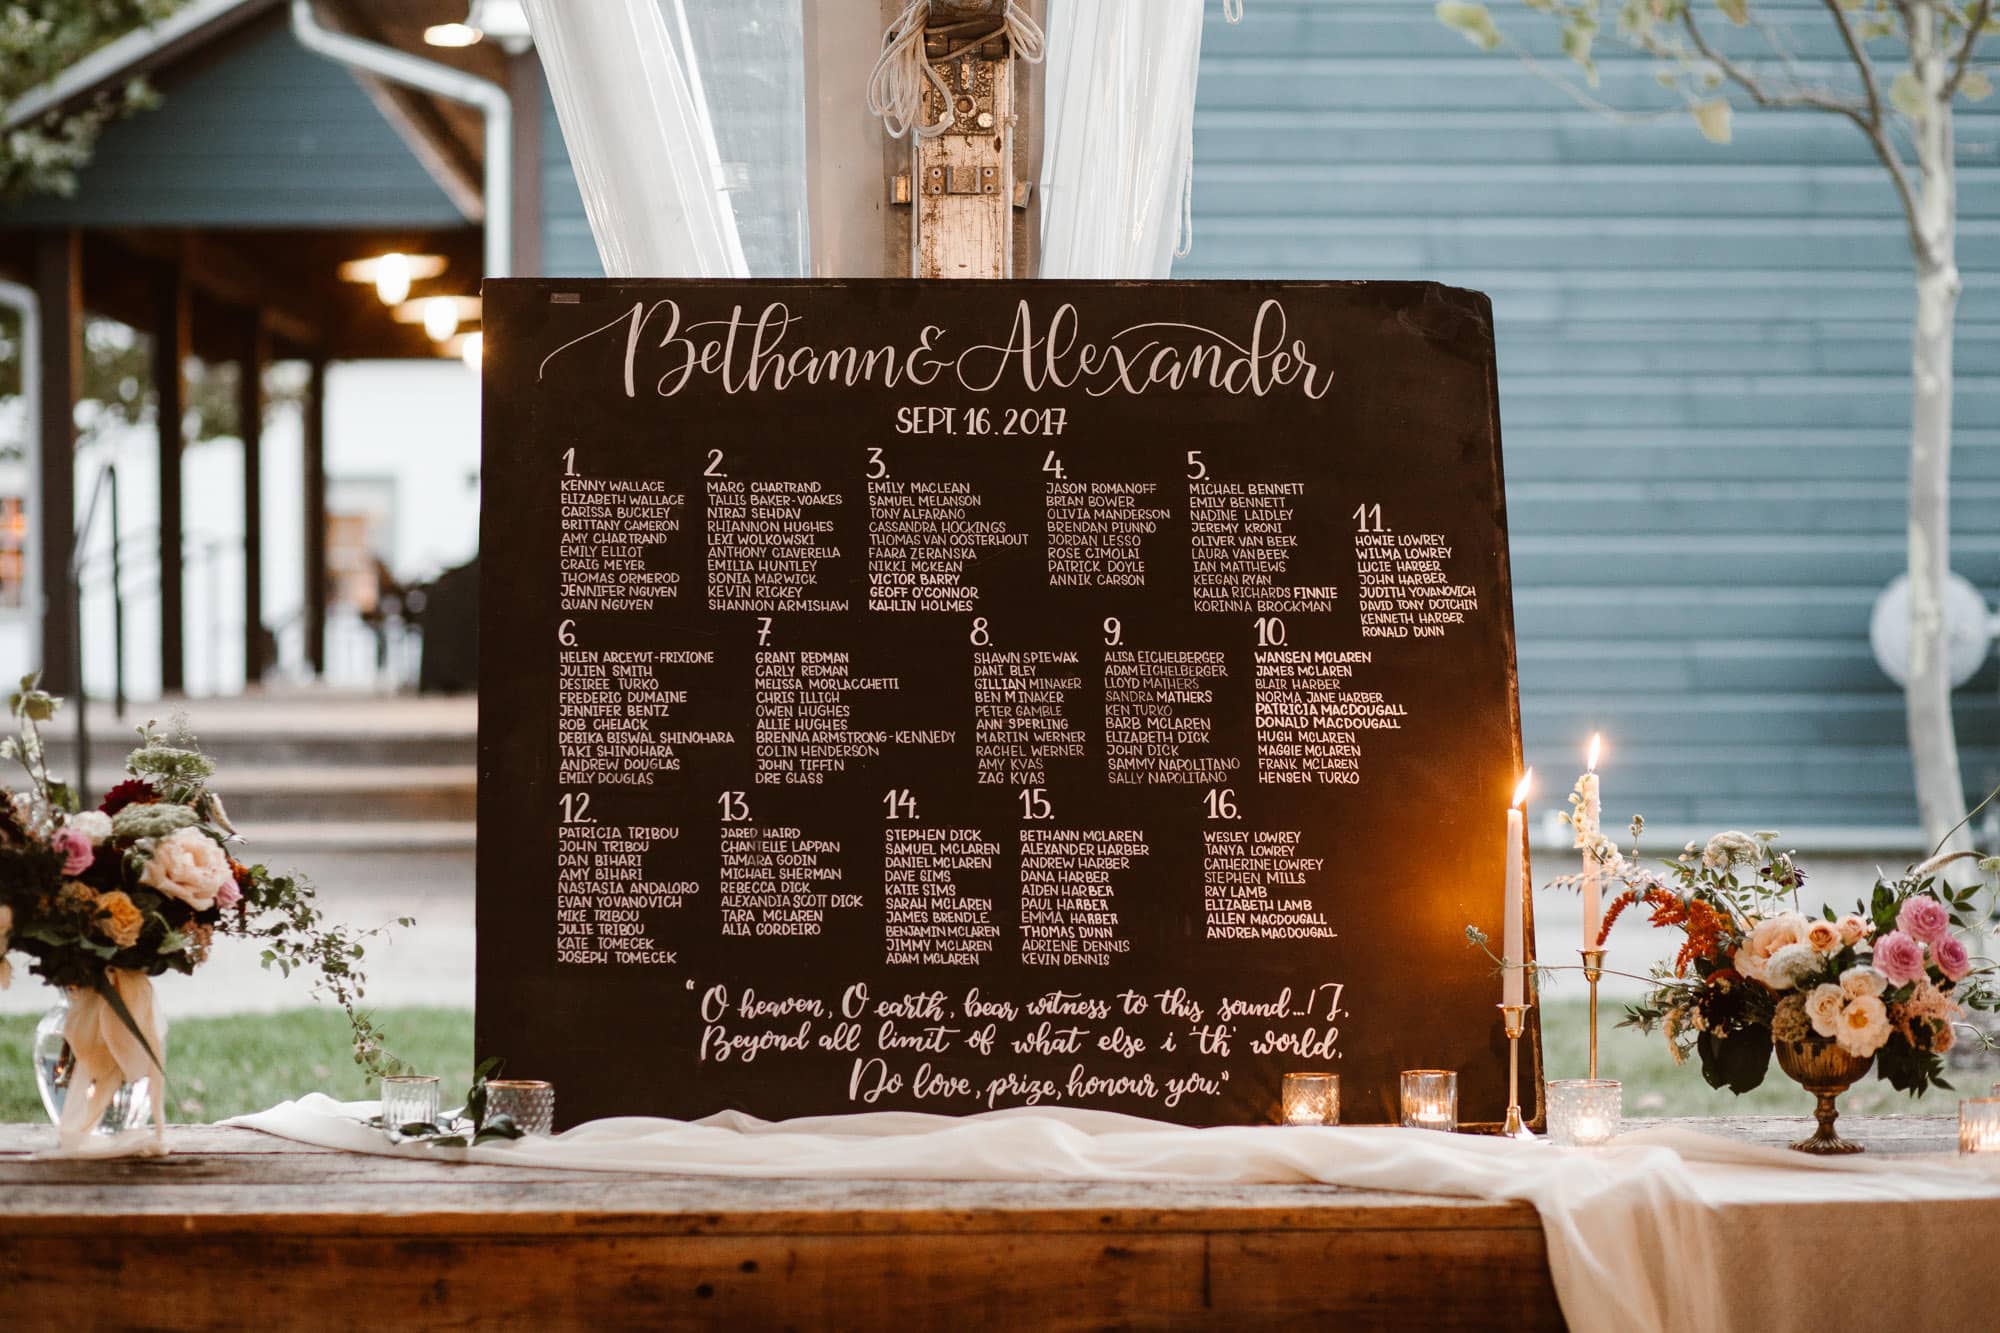 Bethann & Alexander
SEPT. 16. 2017
1.
KENNY WALLACE
ELIZABETH WALLACE
CARISSA BUCKLEY
BRITTANY CAMERON
AMY CHARTRAND
EMILY ELLIOT
CRAIG MEYER
THOMAS ORMEROD
JENNIFER NGUYEN
QUAN NGUYEN
2.
MARC CHARTRAND
TALLIS BAKER-VOAKES
NIRAJ SEHDAV
RHIANNON HUGHES
LEXI WOLKOWSKI
ANTHONY CIAVERELLA
EMILIA HUNTLEY
SONIA MARWICK
KEVIN RICKEY
SHANNON ARMISHAW
3.
EMILY MACLEAN
SAMUEL MELANSON
TONY ALFARANO
CASSANDRA HOCKINGS
THOMAS VAN OOSTERHOUT
FAARA ZERANSKA
NIKKI MCKEAN
VICTOR BARRY
GEOFF O'CONNOR
KAHLIN HOLMES
4.
JASON ROMANOFF
BRIAN BOWER
OLIVIA MANDERSON
BRENDAN PIUNNO
JORDAN LESSO
ROSE CIMOLAI
PATRICK DOYLE
ANNIK CARSON
5.
MICHAEL BENNETT
EMILY BENNETT
NADINE LAIDLEY
JEREMY KRONI
OLIVER VAN BEEK
LAURA VAN BEEK
IAN MATTHEWS
KEEGAN RYAN
KALLA RICHARDS FINNIE
KORINNA BROCKMAN
11.
HOWIE LOWREY
WILMA LOWREY
LUCIE HARBER
JOHN HARBER
JUDITH YOVANOVICH
DAVID TONY DOTCHIN
KENNETH HARBER
RONALD DUNN
6.
HELEN ARCEYUT-FRIXIONE
JULIEN SMITH
DESIREE TURKO
FREDERIC DUMAINE
JENNIFER BENTZ
ROB CHELACK
DEBIKA BISWAL SHINOHARA
TAKI SHINOHARA
ANDREW DOUGLAS
EMILY DOUGLAS
7.
GRANT REDMAN
CARLY REDMAN
MELISSA MORLACCHETTI
CHRIS ILLICH
OWEN HUGHES
ALLIE HUGHES
BRENNA ARMSTRONG-KENNEDY
COLIN HENDERSON
JOHN TIFFIN
DRE GLASS
8.
SHAWN SPIEWAK
DANI BLEY
GILLIAN MINAKER
BEN MINAKER
PETER GAMBLE
ANN SPERLING
MARTIN WERNER
RACHEL WERNER
AMY KVAS
ZAC KVAS
9.
ALISA EICHELBERGER
ADAM EICHELBERGER
LLOYD MATHERS
SANDRA MATHERS
KEN TURKO
BARB MCLAREN
ELIZABETH DICK
JOHN DICK
SAMMY NAPOLITANO
SALLY NAPOLITANO
10.
WANSEN MCLAREN
JAMES MCLAREN
BLAIR HARBER
NORMA JANE HARBER
PATRICIA MACDOUGALL
DONALD MACDOUGALL
HUGH MCLAREN
MAGGIE MCLAREN
FRANK MCLAREN
HENSEN TURKO
12.
PATRICIA TRIBOU
JOHN TRIBOU
DAN BIHARI
AMY BIHARI
NASTASIA ANDALORO
EVAN YOVANOVICH
MIKE TRIBOU
JULIE TRIBOU
KATE TOMECEK
JOSEPH TOMECEK
13.
JARED HAIRD
CHANTELLE LAPPAN
TAMARA GODIN
MICHAEL SHERMAN
REBECCA DICK
ALEXANDIA SCOTT DICK
TARA MCLAREN
ALIA CORDEIRO
14.
STEPHEN DICK
SAMUEL MCLAREN
DANIEL MCLAREN
DAVE SIMS
KATIE SIMS
SARAH MCLAREN
JAMES BRENDLE
BENJAMIN MCLAREN
JIMMY MCLAREN
ADAM MCLAREN
15.
BETHANN MCLAREN
ALEXANDER HARBER
ANDREW HARBER
DANA HARBER
AIDEN HARBER
PAUL HARBER
EMMA HARBER
THOMAS DUNN
ADRIENE DENNIS
KEVIN DENNIS
16.
WESLEY LOWREY
TANYA LOWREY
CATHERINE LOWREY
STEPHEN MILLS
RAY LAMB
ELIZABETH LAMB
ALLEN MACDOUGALL
ANDREA MACDOUGALL
"O heaven, O earth, bear witness to this sound...! I,
Beyond all limit of what else i 'th' world,
Do love, prize, honour you."